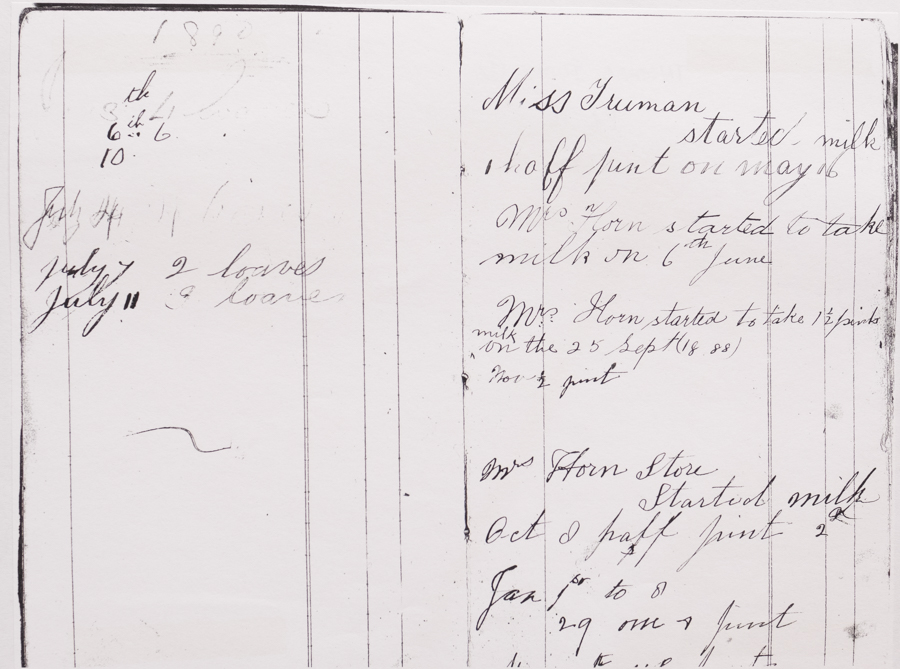 1890
th
6th 6
10
July 4
july 7 2 loaves
July 11 loaves
Miss Truman
started milk
1 haff pint on may 16
Mrs Horn started to take
milk on 6th June
Mrs Horn started to take 1½ pints
milk
on the 25 Sept (18 88)
Nov ½ pint
Mrs Horn Store
Started milk
Oct 8 haff pint 2d
Jan 1st to 8
29 one pint